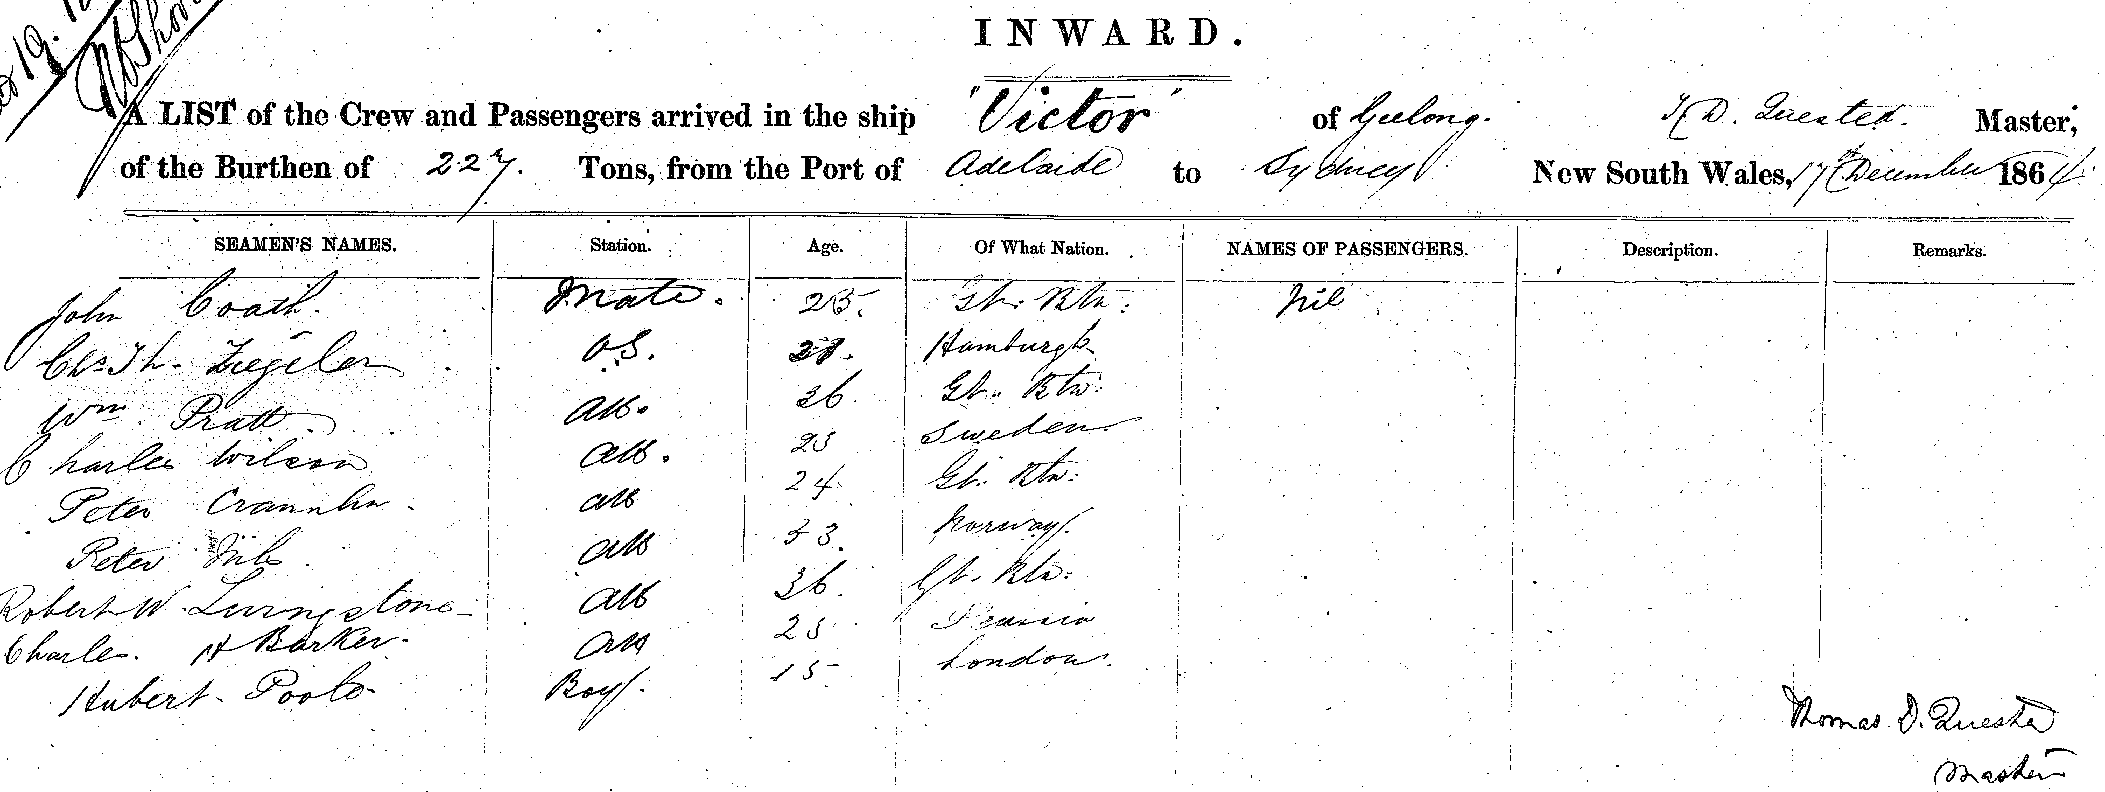 19.
INWARD.
A LIST of the Crew and Passengers arrived in the ship "Victor" of Geelong. T. D. Quested. Master,
of the Burthen of 227. Tons, from the Port of Adelaide to Sydney New South Wales, 17th December 1864
SEAMEN'S NAMES. Station. Age. Of What Nation. NAMES OF PASSENGERS. Description. Remarks.
John Coath. Mate. 25. Gt. Btn: Nil
Chs Th. Ziegeler O.S. 21. Hamburgh
Wm Pratt. AB. 36. Gt. Btn:
Charles Wilson AB. 23 Sweden
Peter AB 24 Gt. Btn:
Peter AB 33. Norway.
Robert W. Livingstone AB 36. Gt. Btn:
Charles. H Barker. AB 25
Hubert Poole Boy. 15 London.
Thomas D. Quested
Master